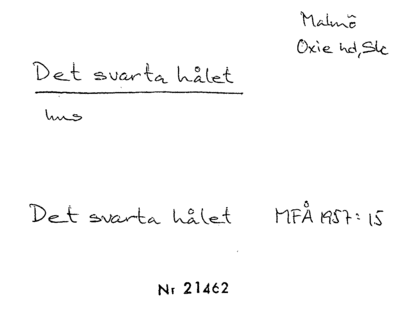 Malmö
Oxie hd, Sk
Det svarta hålet
hus
Det svarta hålet MFÅ 1957: 15
Nr 21462